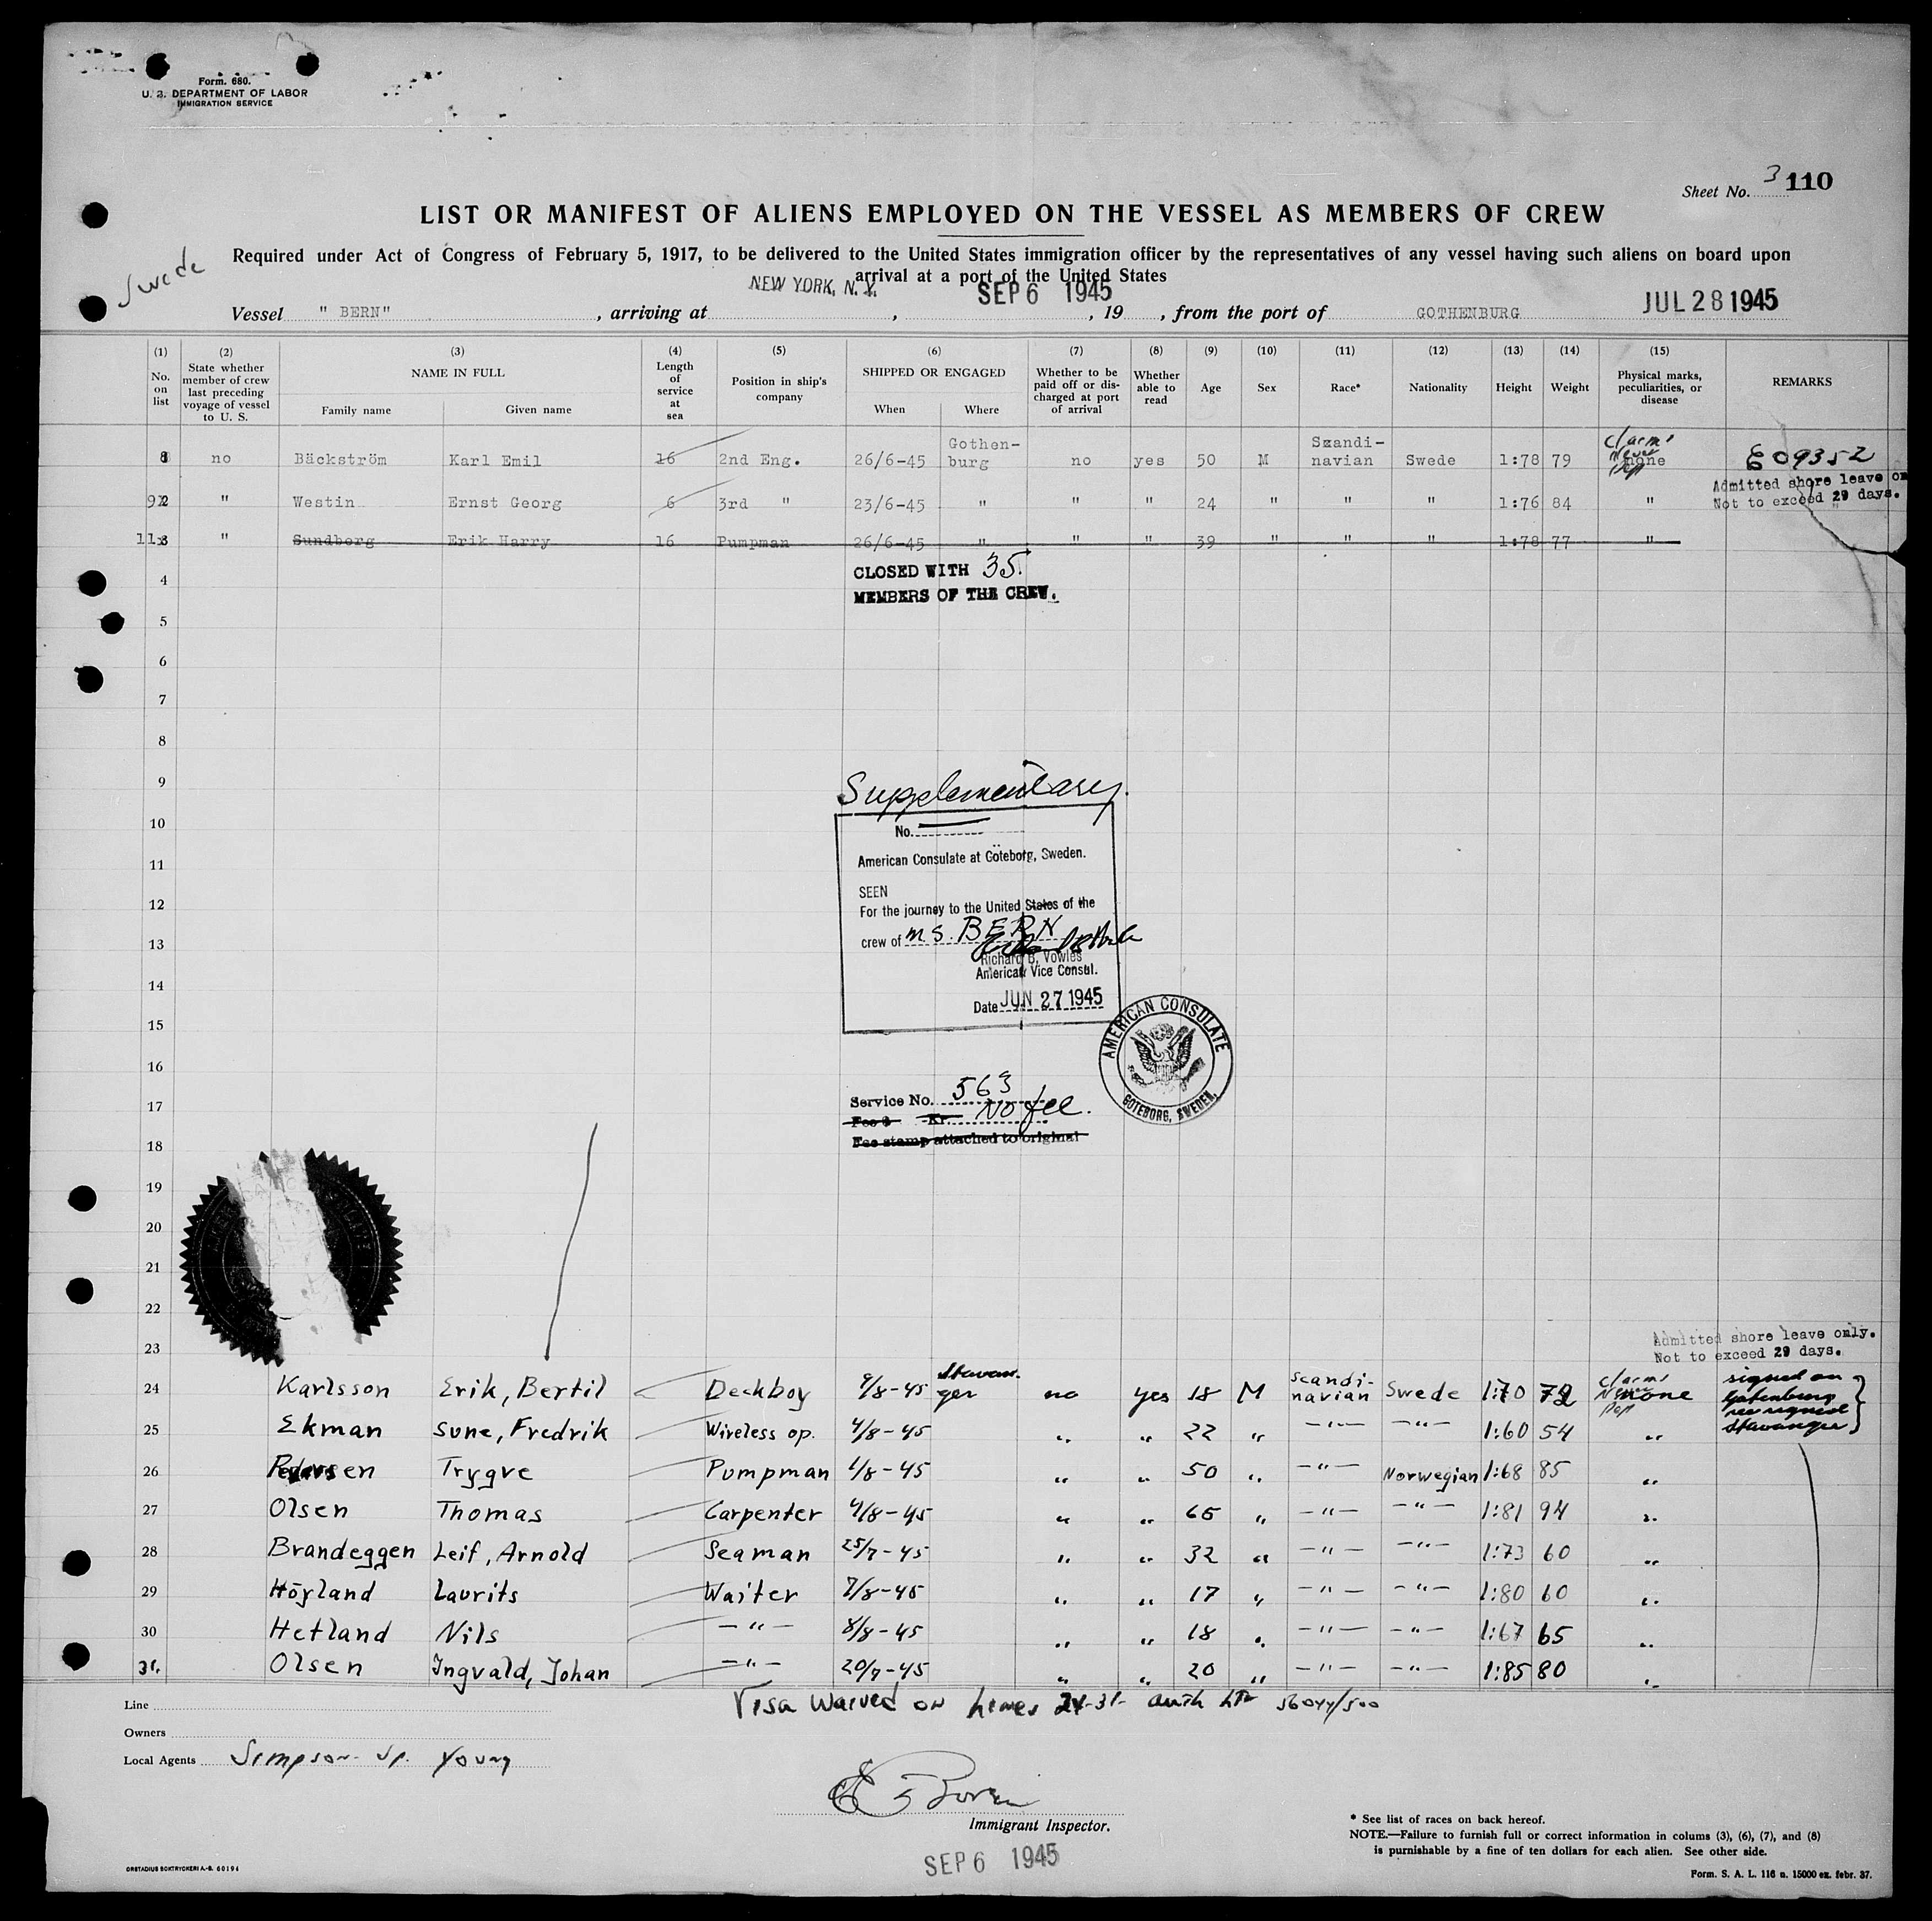 Form. 680.
U. S. DEPARTMENT OF LABOR
IMMIGRATION SERVICE
Sheet No. 3 110
LIST OR MANIFEST OF ALIENS EMPLOYED ON THE VESSEL AS MEMBERS OF CREW
Swede
Required under Act of Congress of February 5, 1917, to be delivered to the United States immigration officer by the representatives of any vessel having such aliens on board upon
arrival at a port of the United States
Vessel " BERN" , arriving at NEW YORK, N. Y. , SEP 6 1945 , 19 , from the port of GOTHENBURG JUL 28 1945
(1) No. on list
(2) State whether member of crew last preceding voyage of vessel to U. S.
(3) NAME IN FULL Family name Given name
(4) Length of service at sea
(5) Position in ship's company
(6) SHIPPED OR ENGAGED When Where
(7) Whether to be paid off or discharged at port of arrival
(8) Whether able to read
(9) Age
(10) Sex
(11) Race*
(12) Nationality
(13) Height
(14) Weight
(15) Physical marks, peculiarities, or disease
REMARKS
8 no Bäckström Karl Emil 16 2nd Eng. 26/6-45 Gothen-burg no yes 50 M Scandi-navian Swede 1:78 79 none E09352
Admitted shore leave on
Not to exceed 29 days.
9 2 " Westin Ernst Georg 6 3rd " 23/6-45 " " " 24 " " " 1:76 84 "
11 3 " Sundberg Erik Harry 16 Pumpman 26/6-45 " " " 39 " " " 1:78 77 "
CLOSED WITH 35.
MEMBERS OF THE CREW.
4
5
6
7
8
9
Supplementary.
10
No.
11
American Consulate at Göteborg, Sweden.
SEEN
12
For the journey to the United States of the
13
crew of M S. BERN
Richard B. Vowles
American Vice Consul.
14
Date JUN 27 1945
15
AMERICAN CONSULATE
GOTEBORG, SWEDEN.
16
Service No. 563
17
Fee $ Kr. No fee.
Fee stamp attached to original
18
19
20
21
22
23
Admitted shore leave only.
Not to exceed 29 days.
24 Karlsson Erik, Bertil Deckboy 9/8-45 Stavanger no yes 18 M Scandi-navian Swede 1:70 72 none signed on Gotenburg re signed Stavanger
25 Ekman Sune, Fredrik Wireless op. 4/8-45 " " 22 " -"- -"- 1:60 54 "
26 Pedersen Trygve Pumpman 4/8-45 " " 50 " -"- Norwegian 1:68 85 "
27 Olsen Thomas Carpenter 4/8-45 " " 65 " -"- -"- 1:81 94 "
28 Brandeggen Leif, Arnold Seaman 25/7-45 " " 32 " -"- -"- 1:73 60 "
29 Höyland Laurits Waiter 7/8-45 " " 17 " -"- -"- 1:80 60 "
30 Hetland Nils -"- 8/8-45 " " 18 " -"- -"- 1:67 65 "
31. Olsen Ingvald, Johan -"- 20/7-45 " " 20 " -"- -"- 1:85 80 "
Visa Waived on lines 24-31- auth ltr 56044/500
Line
Owners
Local Agents Simpson Sp. Young
Immigrant Inspector.
SEP 6 1945
* See list of races on back hereof.
NOTE.—Failure to furnish full or correct information in colums (3), (6), (7), and (8)
is purnishable by a fine of ten dollars for each alien. See other side.
ORSTADIUS BOKTRYCKERI A.-B. 60194
Form. S. A. L. 116 n. 15000 ex. febr. 37.